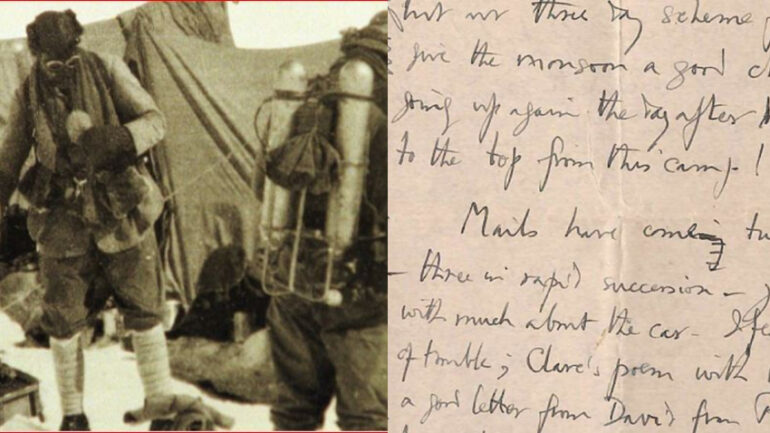 but our three day scheme
give the monsoon a good
going up again the day after
to the top from this camp. !
Mails have come in
- three in rapid succession -
with much about the car -
of trouble; Clare's poem with
a good letter from David from